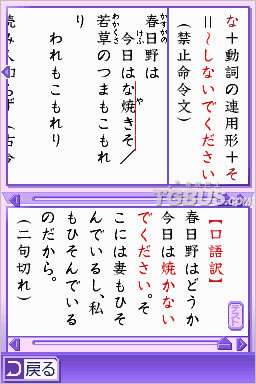 な＋動詞の連用形＋そ
＝～しないでください
（禁止命令文）
春日野は
かすがの
今日はな焼きそ／
けふ
や
若草のつまもこもれ
わかくさ
り
われもこもれり
TGBUS.com
【口語訳】
春日野はどうか
今日は焼かない
でください。そ
こには妻もひそ
んでいるし、私
もひそんでいる
のだから。
（二句切れ）
テスト
戻る